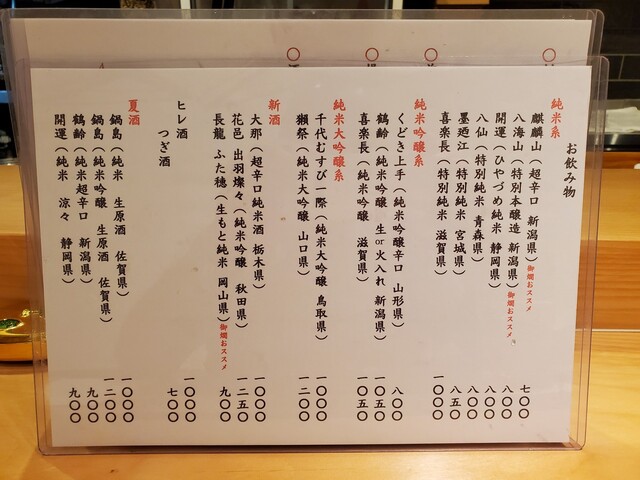 お飲み物
純米系
麒麟山(超辛口 新潟県)御燗おススメ 七〇〇
八海山(特別本醸造 新潟県) 八〇〇
開運(ひやづめ純米 静岡県)御燗おススメ 八〇〇
八仙(特別純米 青森県) 八〇〇
墨廼江(特別純米 宮城県) 八五〇
喜楽長(特別純米 滋賀県) 一〇〇〇
純米吟醸系
くどき上手(純米吟醸辛口 山形県) 八〇〇
鶴齢(純米吟醸 生or火入れ 新潟県) 一〇五〇
喜楽長(純米吟醸 滋賀県) 一〇五〇
純米大吟醸系
千代むすび一際(純米大吟醸 鳥取県) 一〇〇〇
獺祭(純米大吟醸 山口県) 一二〇〇
新酒
大那(超辛口純米酒 栃木県) 一〇〇〇
花邑 出羽燦々(純米吟醸 秋田県) 一二五〇
長龍 ふた穂(生もと純米 岡山県)御燗おススメ 九〇〇
ヒレ酒 一〇〇〇
つぎ酒 七〇〇
夏酒
鍋島(純米 生原酒 佐賀県) 一〇〇〇
鍋島(純米吟醸 生原酒 佐賀県) 一二〇〇
鶴齢(純米超辛口 新潟県) 九〇〇
開運(純米 涼々 静岡県) 九〇〇